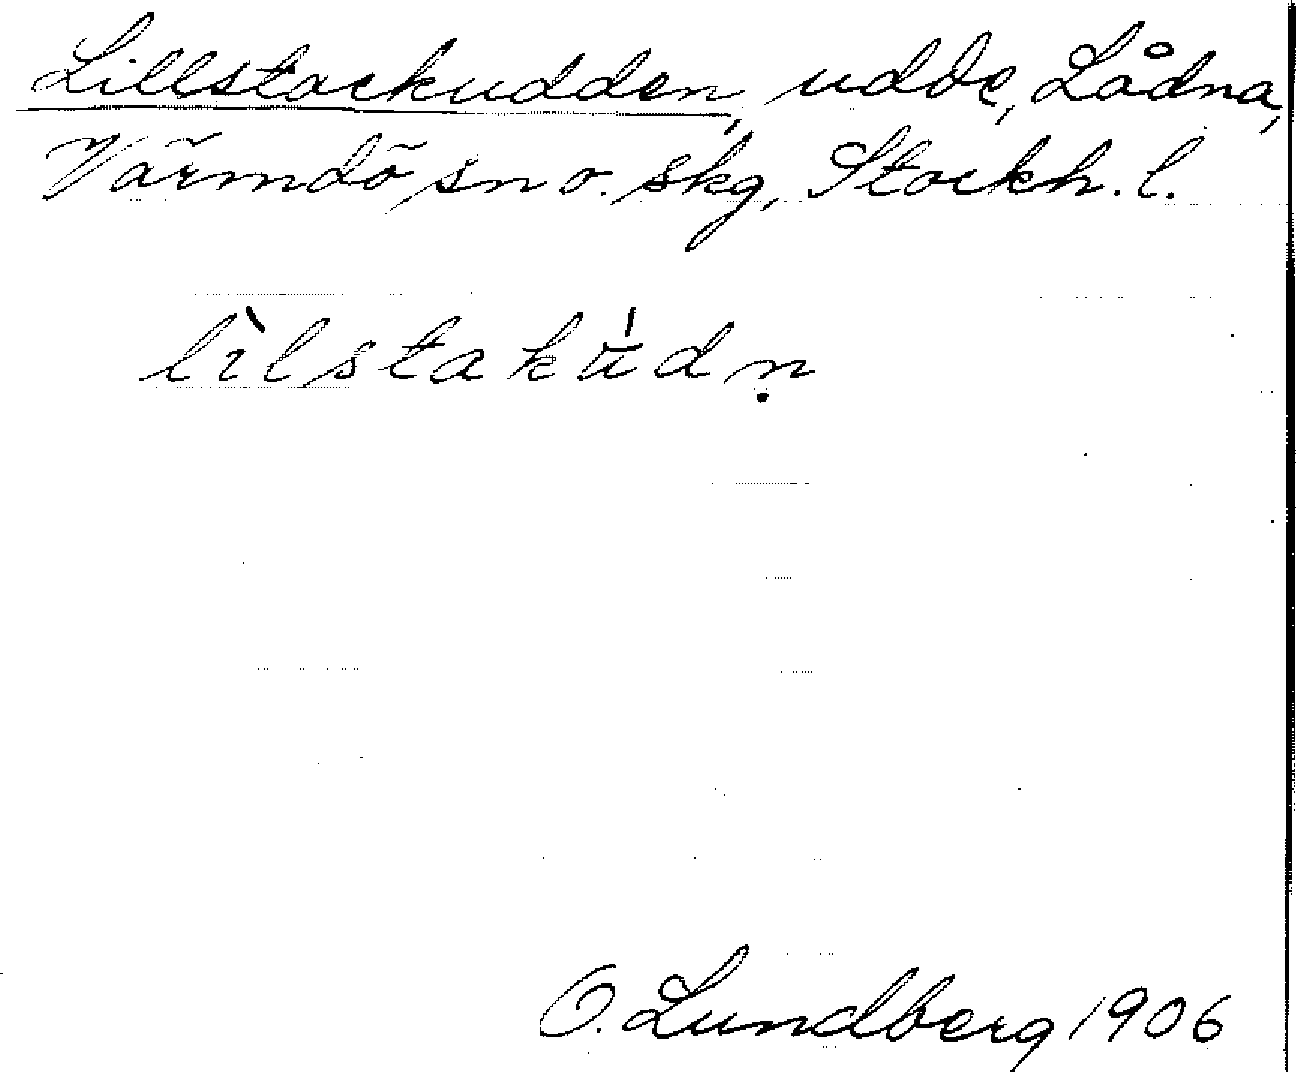 Lillstackudden, udde, Lådna,
Värmdö sn o. skg, Stockh. l.
lìlstakū́dṇ
O. Lundberg 1906